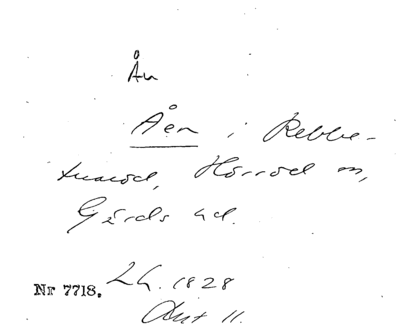 Ån
Åen i Rebbe-
tuaröd, Hörröd sn,
Gärds hd.
Nr 7718. LA. 1828
Akt 11.